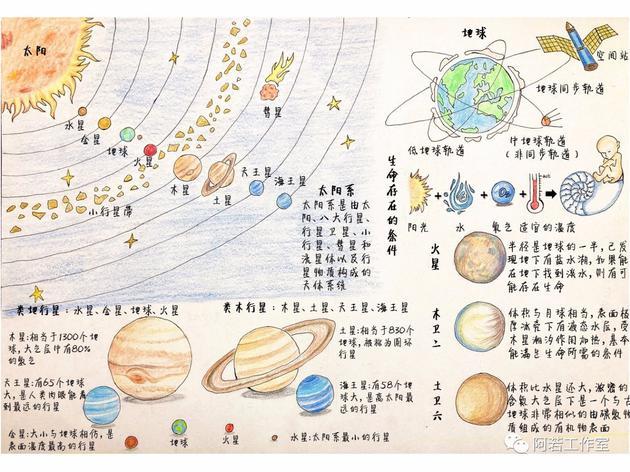 太阳
水星
金星
地球
火星
木星
土星
天王星
海王星
彗星
小行星带
太阳系
太阳系是由太
阳、八大行星、
行星卫星、小
行星、彗星和
流星体以及行
星物质构成的
天体系统
类地行星：水星、金星、地球、火星
类木行星：木星、土星、天王星、海王星
木星：相当于1300个地
球，大气层中有80%
的氢气
土星：相当于830个
地球，被称为圆环
行星
天王星：有65个地球
大，是人类肉眼能看
到最远的行星
海王星：有58个地
球大，是离太阳最
远的行星
金星：大小与地球相仿，是
表面温度最高的行星
地球
火星
水星：太阳系最小的行星
地球
空间站
地球同步轨道
低地球轨道
中地球轨道
（非同步轨道）
生命存在的条件
阳光
水
氧气
适宜的温度
火星
半径是地球的一半，已发
现地下有盐水湖，如果能
在地下找到淡水，则有可
能存在生命
木卫二
体积与月球相当，表面极
厚冰壳下有液态水层，受
木星潮汐作用加热，基本
能满足生命所需的条件
土卫六
体积比水星还大，浓密的
含氮大气层下是一个与古
地球非常相似的由碳氢物
质组成的有机物表面
阿若工作室